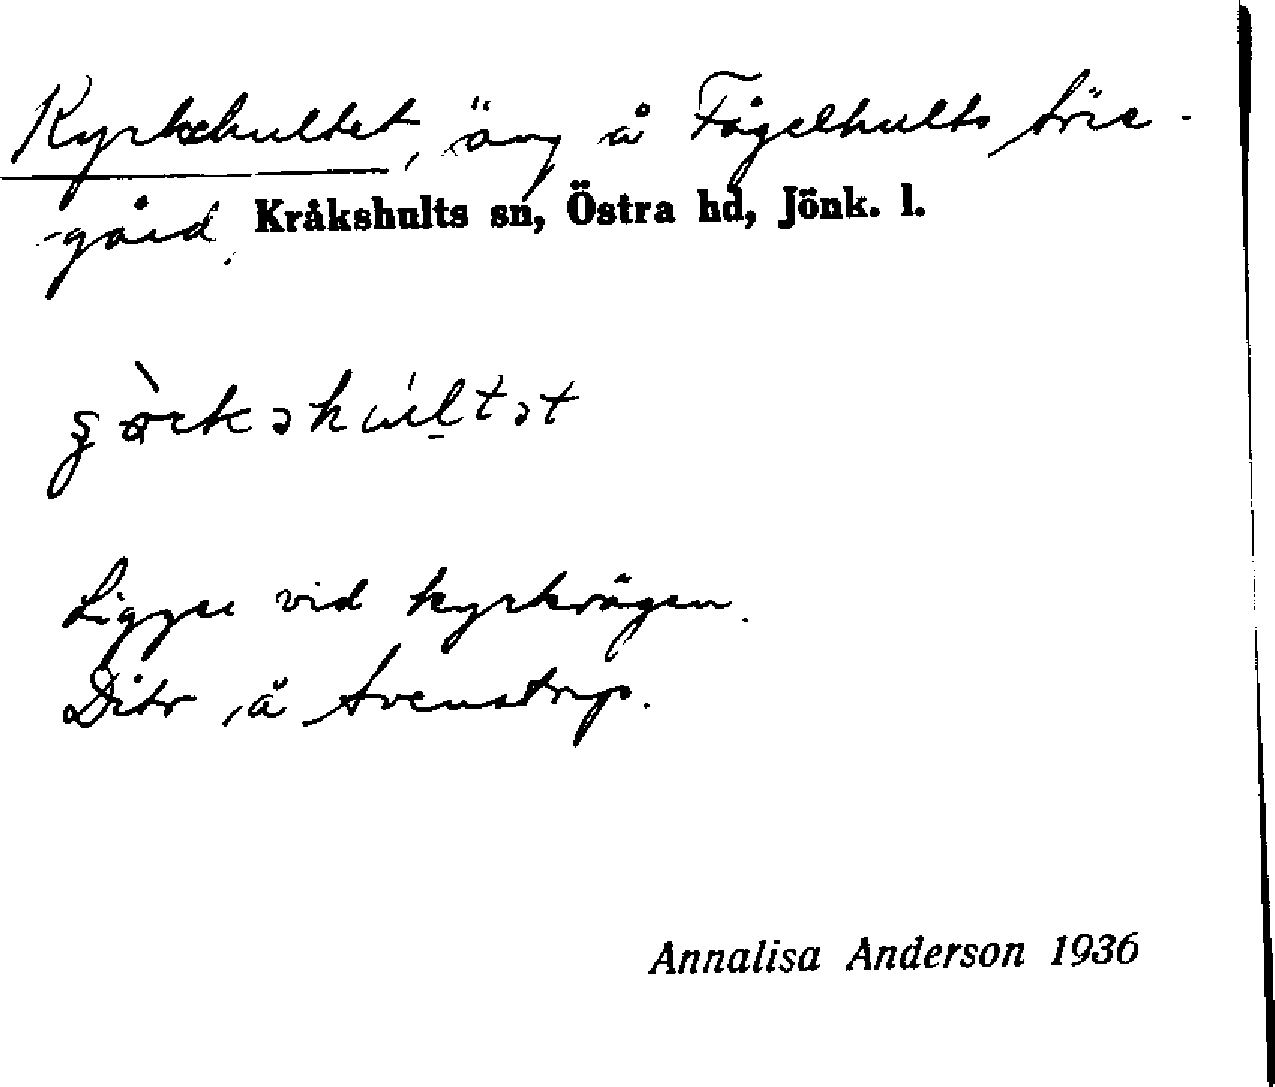 Kyrkehultet, äng å Fågelhults Söre-
-gård, Kråkshults sn, Östra hd, Jönk. l.
Ligger vid kyrkvägen.
Dito, å Svenstorp.
Annalisa Anderson 1936